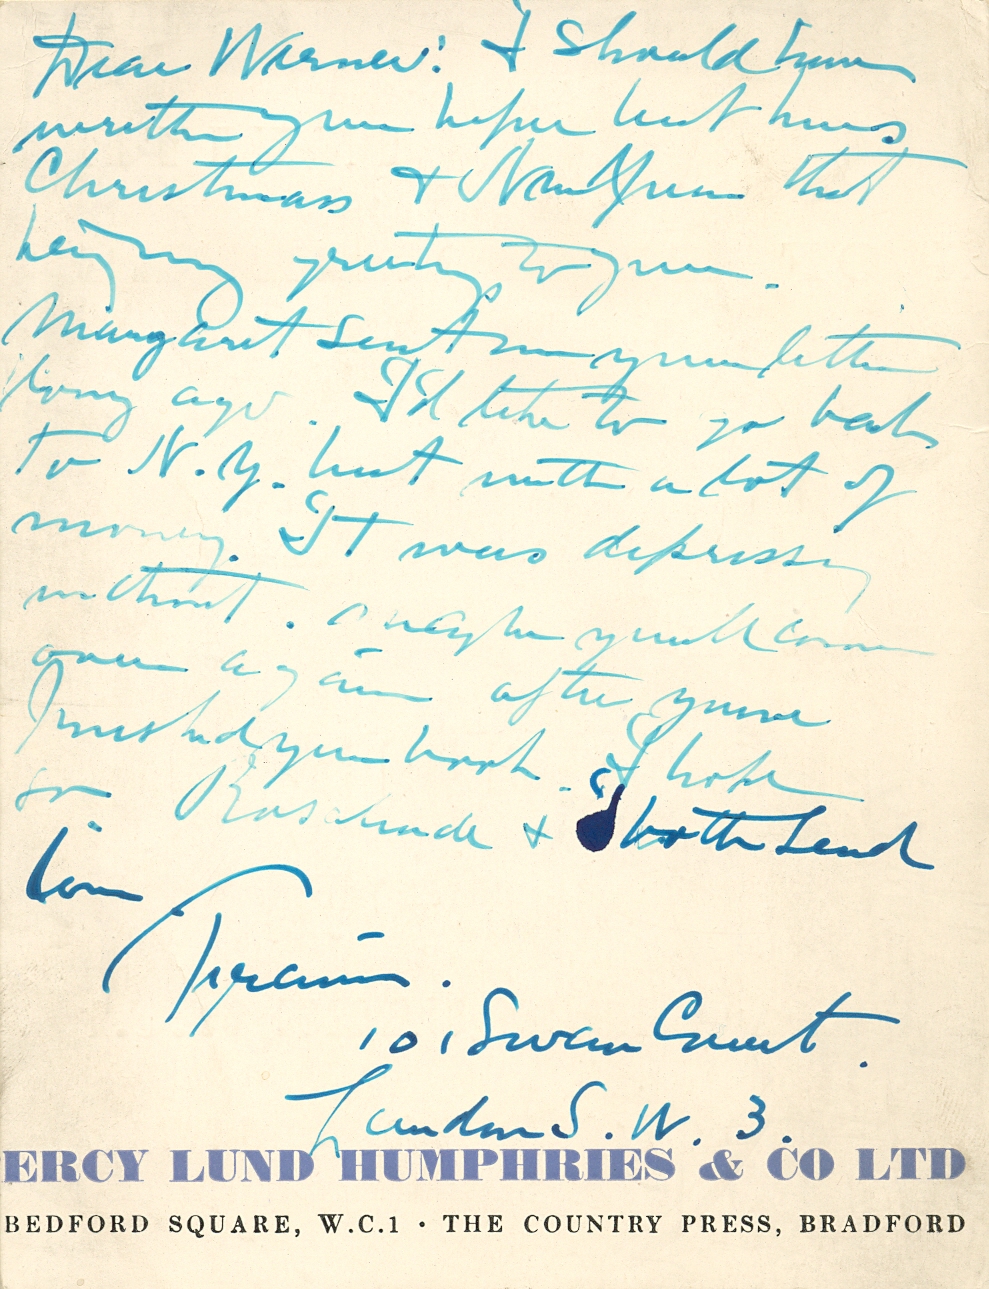 Dear Warner: I should have
written you before but hves
Christmas & New Year that
bring my greeting to you.
Margaret sent me your letter
long ago. I'd like to go back
to N.Y. but with a lot of
money. It was depressing
without. maybe you'll come
over again after you've
finished your book. I hope
so Rosalinde & I both send
love
Francis.
101 Swan Court.
London S.W. 3.
ERCY LUND HUMPHRIES & CO LTD
BEDFORD SQUARE, W.C.1 · THE COUNTRY PRESS, BRADFORD